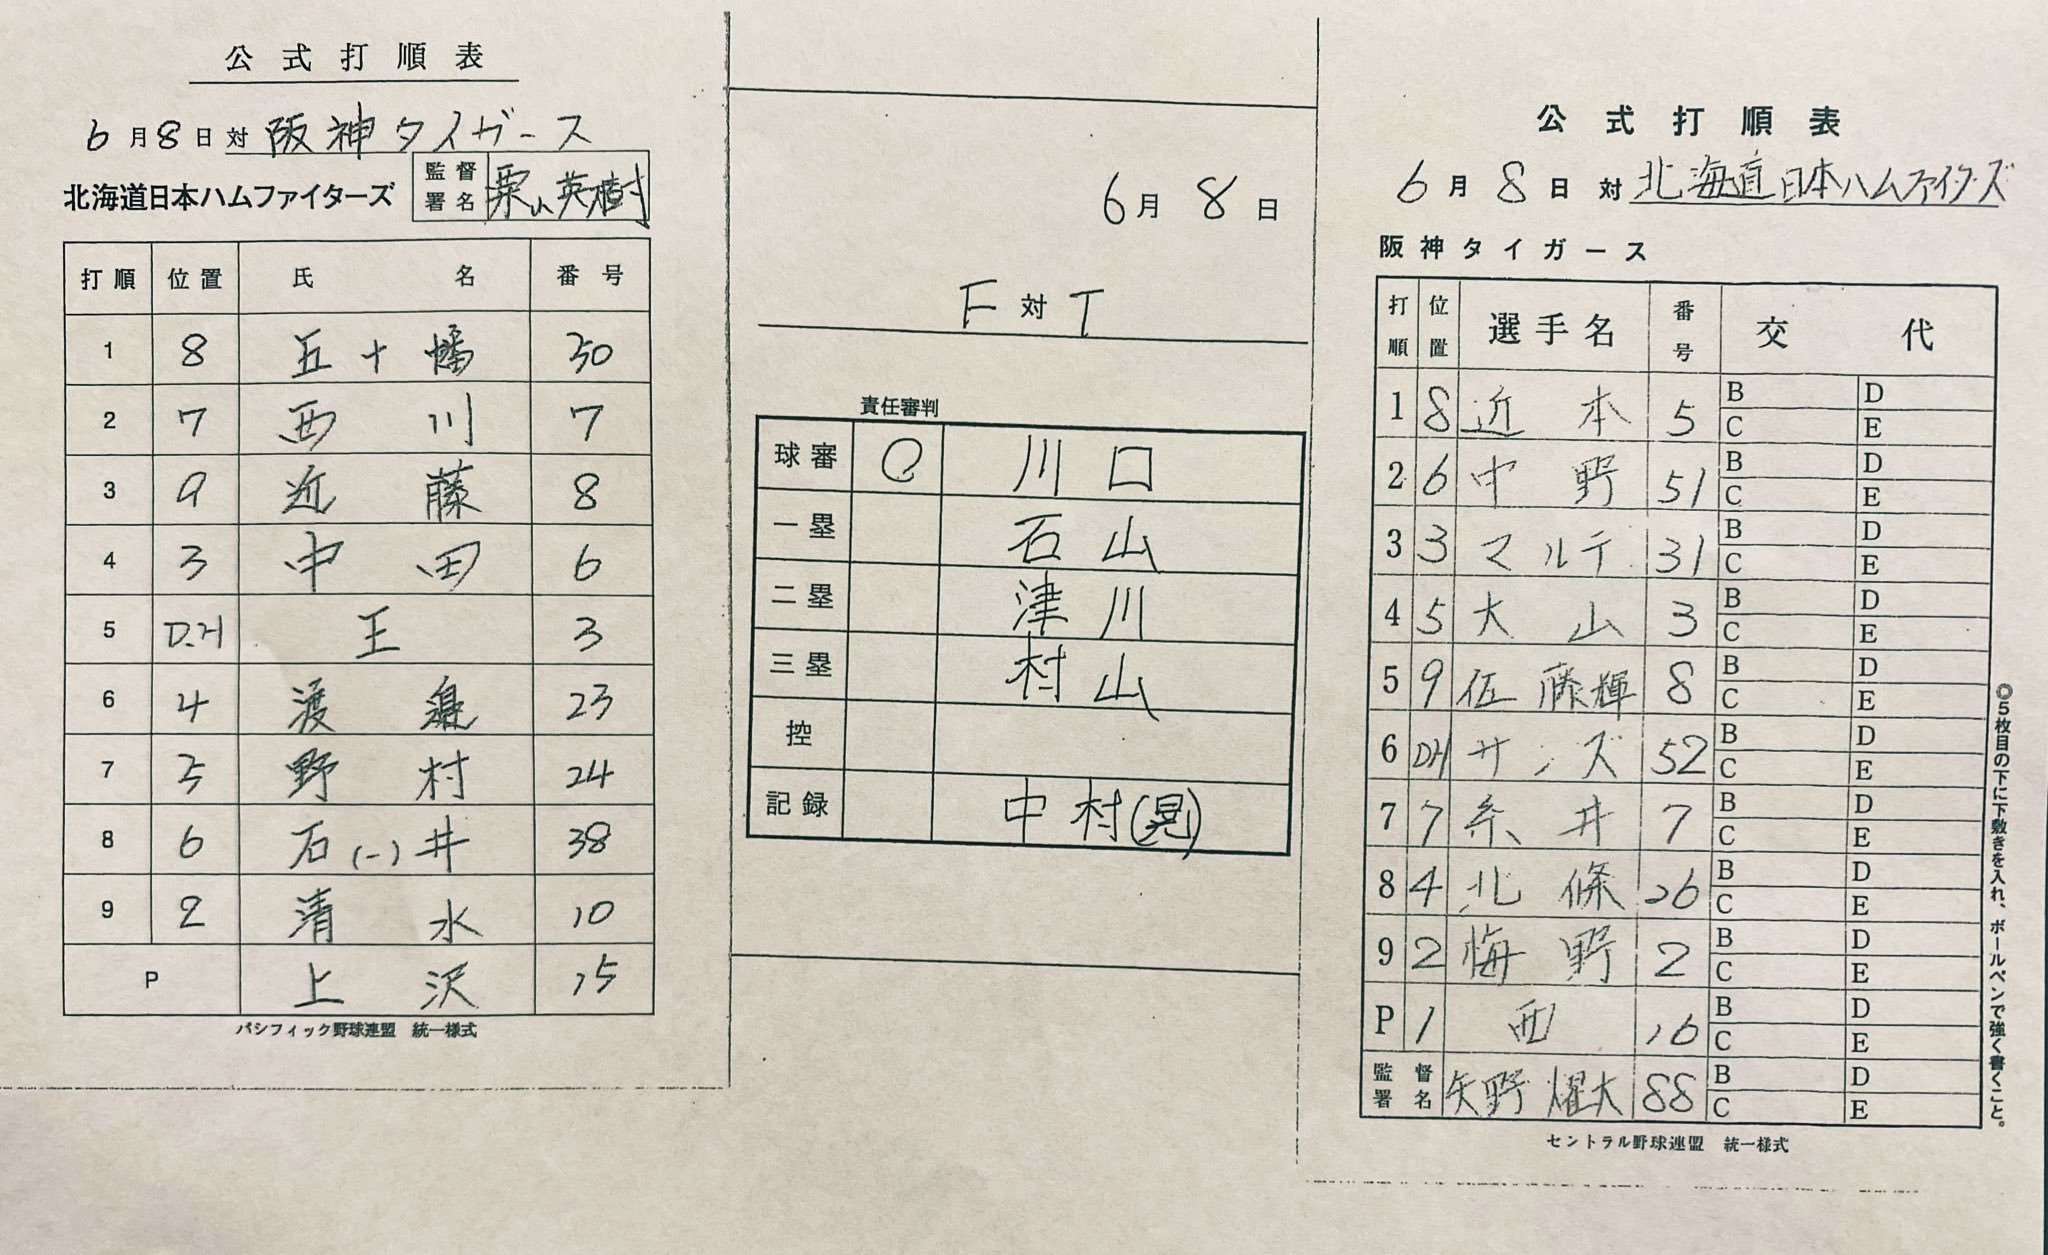 公式打順表
6月8日対 阪神タイガース
北海道日本ハムファイターズ 監督署名 栗山英樹
打順 位置 氏名 番号
1 8 五十幡 50
2 7 西川 7
3 9 近藤 8
4 3 中田 6
5 D.H 王 3
6 4 渡邉 23
7 5 野村 24
8 6 石(一)井 38
9 2 清水 10
P 上沢 15
パシフィック野球連盟 統一様式
6月8日
F対T
責任審判
球審 〇 川口
一塁 石山
二塁 津川
三塁 村山
控
記録 中村(晃)
公式打順表
6月8日対 北海道日本ハムファイターズ
阪神タイガース
打順 位置 選手名 番号 交代
1 8 近本 5 B C D E
2 6 中野 51 B C D E
3 3 マルテ 31 B C D E
4 5 大山 3 B C D E
5 9 佐藤輝 8 B C D E
6 DH サンズ 52 B C D E
7 7 糸井 7 B C D E
8 4 北條 26 B C D E
9 2 梅野 2 B C D E
P 1 西 16 B C D E
監督署名 矢野燿大 88 B C D E
セントラル野球連盟 統一様式
◎5枚目の下に下敷きを入れ、ボールペンで強く書くこと。